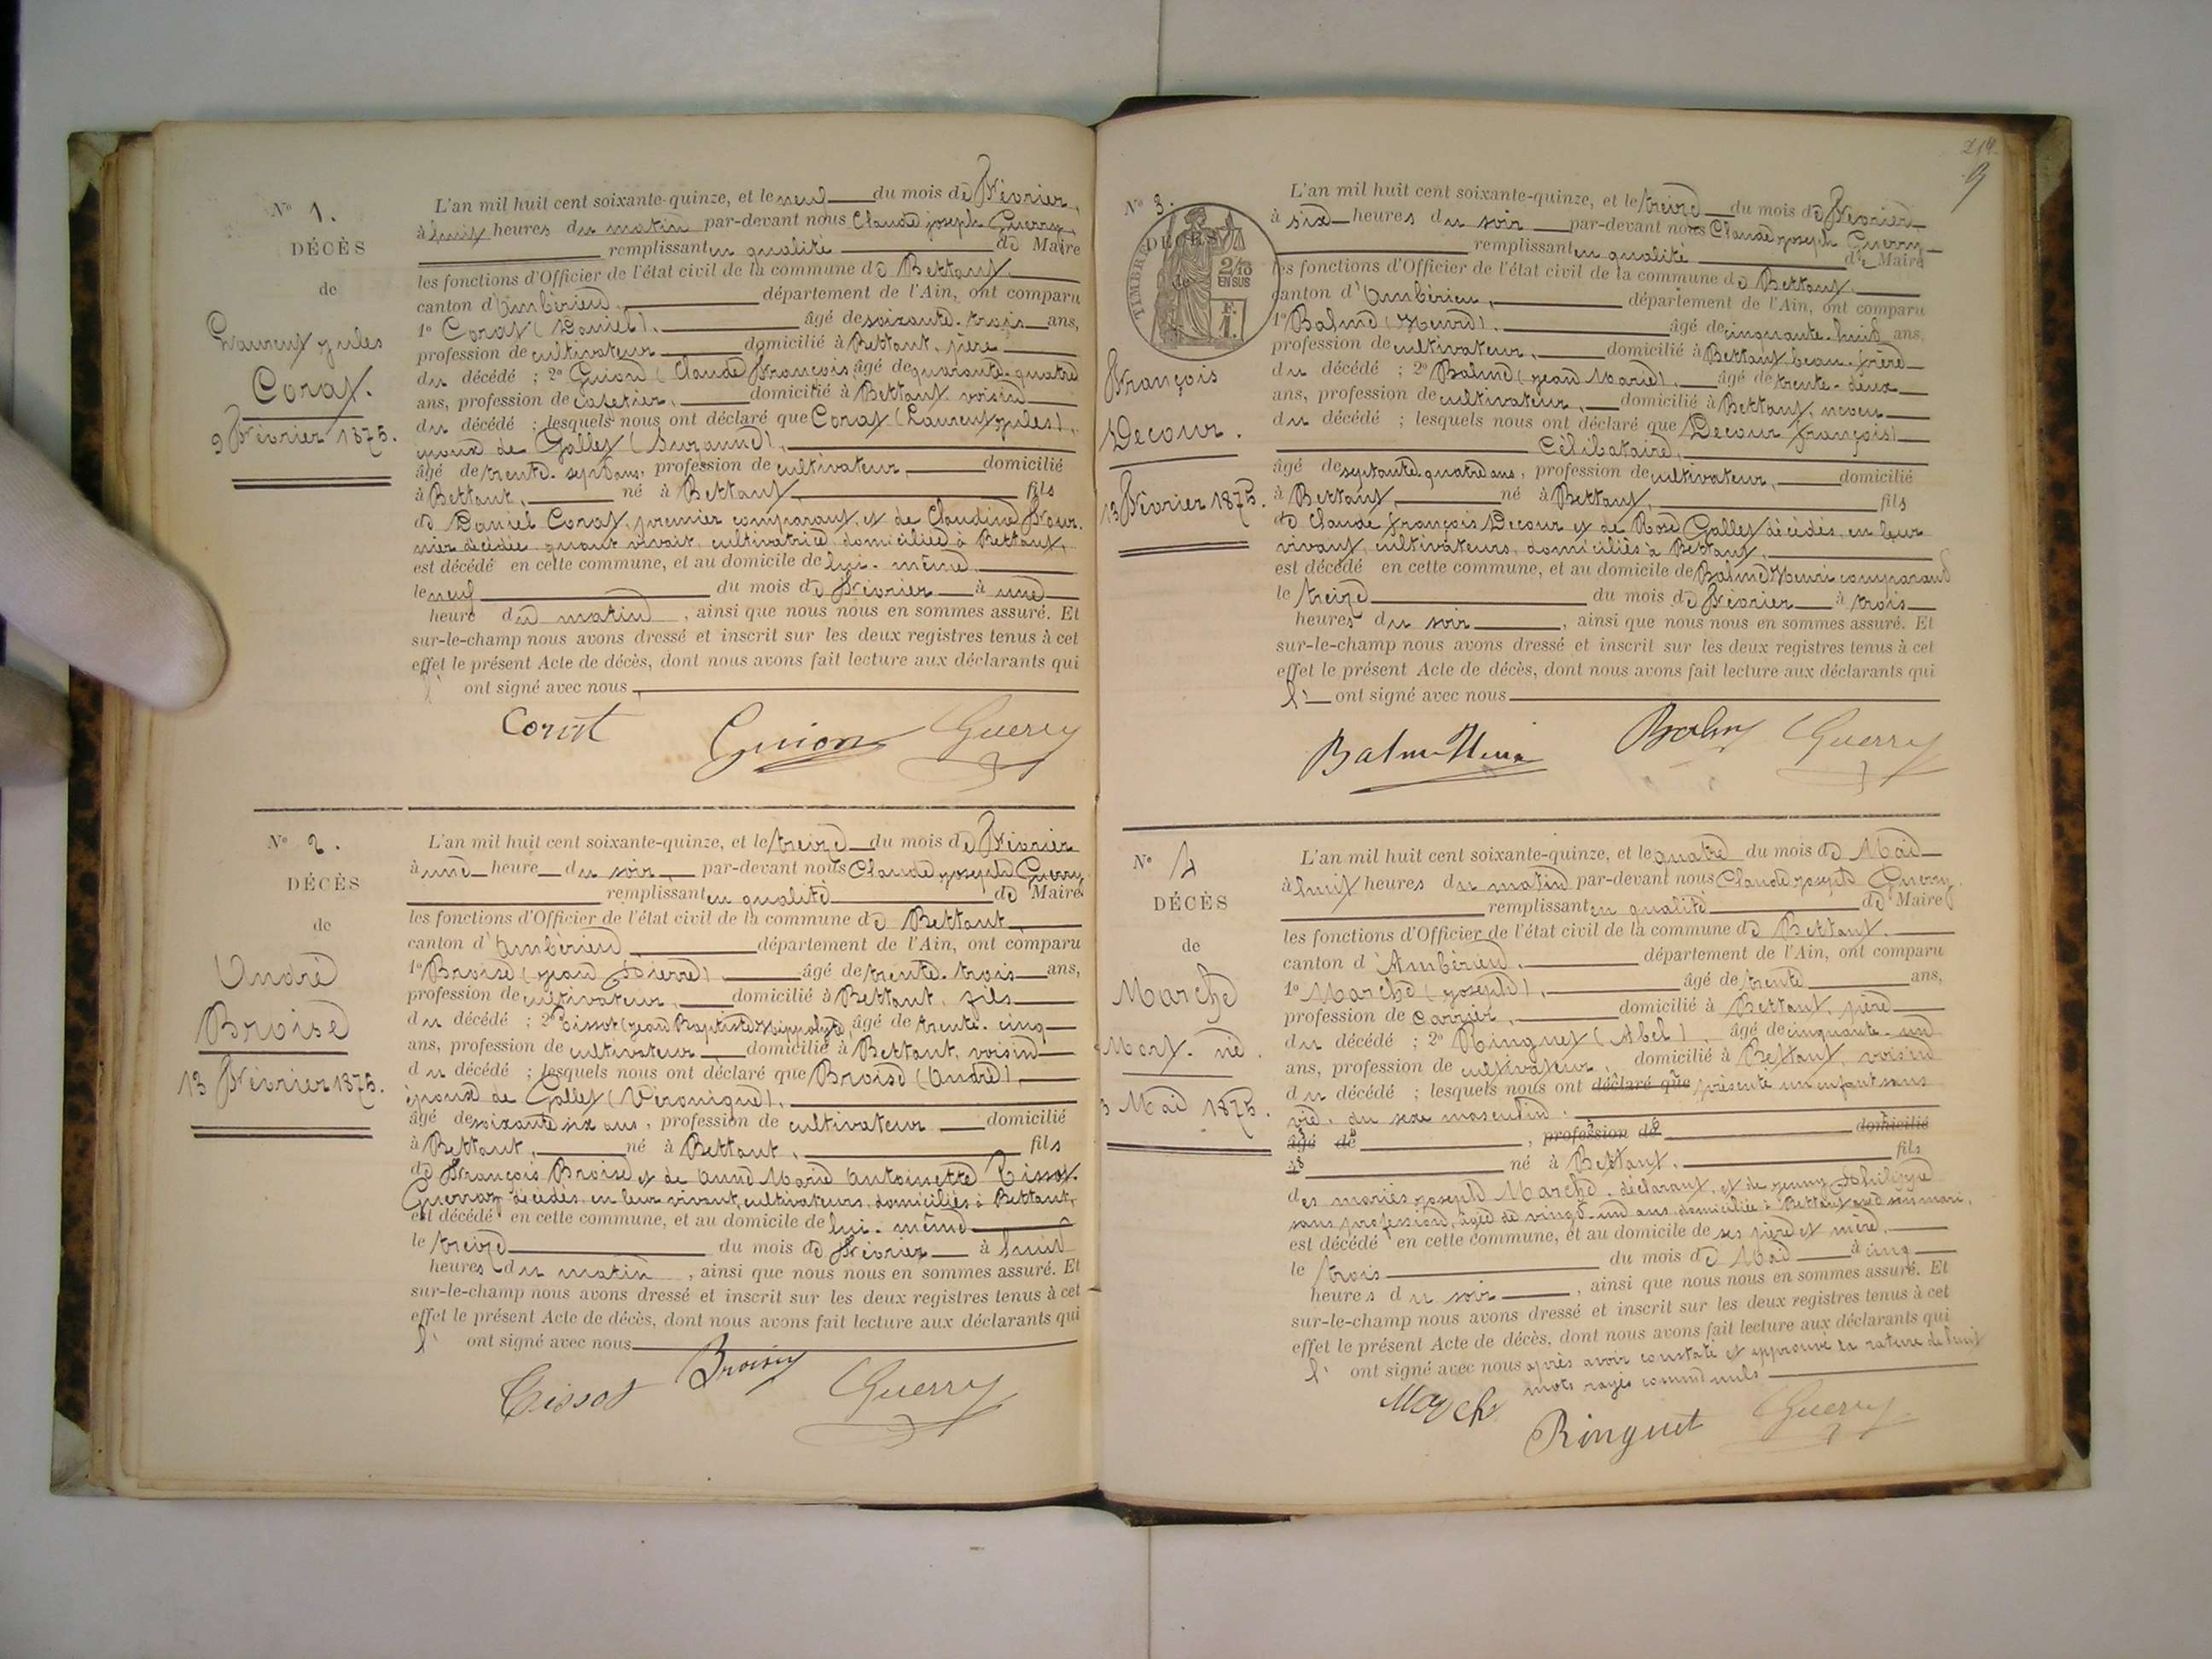 N° 1.
DÉCÈS
de
Laurent jules
Corat.
9 Février 1875.
L'an mil huit cent soixante-quinze, et le neuf du mois de Février,
à huit heures du matin par-devant nous Claude joseph Guerry,
remplissant en qualité de Maire
les fonctions d'Officier de l'état civil de la commune de Bettant,
canton d'Ambérieu, département de l'Ain, ont comparu
1° Corat (Daniel), âgé de soixante-trois ans,
profession de cultivateur domicilié à Bettant, père
du décédé ; 2° Guion (Claude François), âgé de quarante-quatre
ans, profession de cafetier, domicilié à Bettant, voisin
du décédé ; lesquels nous ont déclaré que Corat (Laurent jules),
époux de Gallet (Suzanne),
âgé de trente-sept ans, profession de cultivateur, domicilié
à Bettant, né à Bettant, fils
de Daniel Corat, premier comparant, et de Claudine Four-
nier décédée, quant vivait, cultivatrice domiciliée à Bettant,
est décédé en cette commune, et au domicile de lui-même
le neuf du mois de Février à une
heure du matin, ainsi que nous nous en sommes assuré. Et
sur-le-champ nous avons dressé et inscrit sur les deux registres tenus à cet
effet le présent Acte de décès, dont nous avons fait lecture aux déclarants qui
l' ont signé avec nous,
Corat Guion Guerry
N° 2.
DÉCÈS
de
André
Broise
13 Février 1875.
L'an mil huit cent soixante-quinze, et le treize du mois de Février
à une heure du soir par-devant nous Claude joseph Guerry
remplissant en qualité de Maire
les fonctions d'Officier de l'état civil de la commune de Bettant
canton d'Ambérieu département de l'Ain, ont comparu
1° Broise (jean Pierre), âgé de trente-trois ans,
profession de cultivateur, domicilié à Bettant, fils
du décédé ; 2° Tissot (jean Baptiste Hippolyte), âgé de trente-cinq
ans, profession de cultivateur domicilié à Bettant, voisin
du décédé ; lesquels nous ont déclaré que Broise (André),
époux de Gallet (Véronique),
âgé de soixante six ans, profession de cultivateur domicilié
à Bettant, né à Bettant, fils
de François Broise et de Anne Marie Antoinette Tissot-
Guerraz décédés, en leur vivant, cultivateurs, domiciliés à Bettant,
est décédé en cette commune, et au domicile de lui-même
le treize du mois de Février à huit
heures du matin, ainsi que nous nous en sommes assuré. Et
sur-le-champ nous avons dressé et inscrit sur les deux registres tenus à cet
effet le présent Acte de décès, dont nous avons fait lecture aux déclarants qui
l' ont signé avec nous
Tissot Broise Guerry
214.
N° 3.
DÉCÈS
de
TIMBRE
2/10
EN SUS
F.
1.
François
Decour.
13 Février 1875.
L'an mil huit cent soixante-quinze, et le treize du mois de Février
à six heures du soir par-devant nous Claude joseph Guerry
remplissant en qualité de Maire
les fonctions d'Officier de l'état civil de la commune de Bettant,
canton d'Ambérieu, département de l'Ain, ont comparu
1° Balme (Henri), âgé de cinquante-huit ans,
profession de cultivateur, domicilié à Bettant, beau-frère
du décédé ; 2° Balme (jean Marie), âgé de trente-deux
ans, profession de cultivateur, domicilié à Bettant, neveu
du décédé ; lesquels nous ont déclaré que Decour (françois)
Célibataire,
âgé de septante quatre ans, profession de cultivateur, domicilié
à Bettant, né à Bettant, fils
de Claude françois Decour et de Rose Gallet décédés, en leur
vivant, cultivateurs, domiciliés à Bettant,
est décédé en cette commune, et au domicile de Balme Henri comparant
le treize du mois de Février à trois
heures du soir, ainsi que nous nous en sommes assuré. Et
sur-le-champ nous avons dressé et inscrit sur les deux registres tenus à cet
effet le présent Acte de décès, dont nous avons fait lecture aux déclarants qui
l' ont signé avec nous
Balme Henri Balme Guerry
N° 4
DÉCÈS
de
Marche
Mort-né.
3 Mai 1875.
L'an mil huit cent soixante-quinze, et le quatre du mois de Mai
à huit heures du matin par-devant nous Claude joseph Guerry
remplissant en qualité de Maire
les fonctions d'Officier de l'état civil de la commune de Bettant,
canton d'Ambérieu, département de l'Ain, ont comparu
1° Marche (joseph), âgé de trente ans,
profession de carrier, domicilié à Bettant, père
du décédé ; 2° Ringuet (Abel), âgé de cinquante-un
ans, profession de cultivateur, domicilié à Bettant, voisin
du décédé ; lesquels nous ont déclaré que présenté un enfant sans
vie, du sexe masculin,
âgé de, profession de domicilié
à né à Bettant, fils
des mariés joseph Marche, déclarant, et de jenny Philippe
sans profession, âgée de vingt-un ans, domiciliée à Bettant avec son mari,
est décédé en cette commune, et au domicile de ses père et mère,
le trois du mois de Mai à cinq
heures du soir, ainsi que nous nous en sommes assuré. Et
sur-le-champ nous avons dressé et inscrit sur les deux registres tenus à cet
effet le présent Acte de décès, dont nous avons fait lecture aux déclarants qui
l' ont signé avec nous après avoir constaté et approuvé la rature de huit
mots rayés comme nuls
Marche Ringuet Guerry